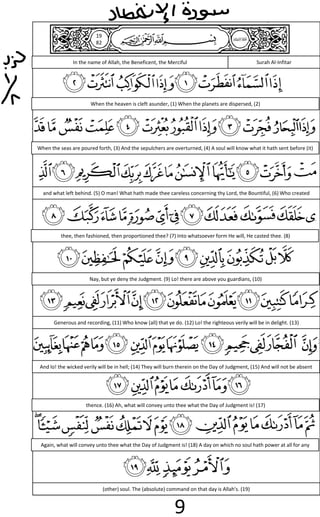 سورة الإنفطار
19
82
بِسْمِ ٱللَّهِ ٱلرَّحْمَٰنِ ٱلرَّحِيمِ
In the name of Allah, the Beneficent, the Merciful Surah Al-Infitar
إِذَا ٱلسَّمَآءُ ٱنفَطَرَتْ ١ وَإِذَا ٱلْكَوَاكِبُ ٱنتَثَرَتْ ٢
When the heaven is cleft asunder, (1) When the planets are dispersed, (2)
وَإِذَا ٱلْبِحَارُ فُجِّرَتْ ٣ وَإِذَا ٱلْقُبُورُ بُعْثِرَتْ ٤ عَلِمَتْ نَفْسٌ مَّا قَدَّ
When the seas are poured forth, (3) And the sepulchers are overturned, (4) A soul will know what it hath sent before (it)
مَتْ وَأَخَّرَتْ ٥ يَٰٓأَيُّهَا ٱلْإِنسَٰنُ مَا غَرَّكَ بِرَبِّكَ ٱلْكَرِيمِ ٦ ٱلَّذِ
and what left behind. (5) O man! What hath made thee careless concerning thy Lord, the Bountiful, (6) Who created
ى خَلَقَكَ فَسَوَّىٰكَ فَعَدَلَكَ ٧ فِىٓ أَىِّ صُورَةٍ مَّا شَآءَ رَكَّبَكَ ٨
thee, then fashioned, then proportioned thee? (7) Into whatsoever form He will, He casted thee. (8)
كَلَّا بَلْ تُكَذِّبُونَ بِٱلدِّينِ ٩ وَإِنَّ عَلَيْكُمْ لَحَٰفِظِينَ ١٠
Nay, but ye deny the Judgment. (9) Lo! there are above you guardians, (10)
كِرَامًا كَٰتِبِينَ ١١ يَعْلَمُونَ مَا تَفْعَلُونَ ١٢ إِنَّ ٱلْأَبْرَارَ لَفِى نَعِيمٍ ١٣
Generous and recording, (11) Who know (all) that ye do. (12) Lo! the righteous verily will be in delight. (13)
وَإِنَّ ٱلْفُجَّارَ لَفِى جَحِيمٍ ١٤ يَصْلَوْنَهَا يَوْمَ ٱلدِّينِ ١٥ وَمَا هُمْ عَنْهَا بِغَآئِبِينَ
And lo! the wicked verily will be in hell; (14) They will burn therein on the Day of Judgment, (15) And will not be absent
١٦ وَمَآ أَدْرَىٰكَ مَا يَوْمُ ٱلدِّينِ ١٧
thence. (16) Ah, what will convey unto thee what the Day of Judgment is! (17)
ثُمَّ مَآ أَدْرَىٰكَ مَا يَوْمُ ٱلدِّينِ ١٨ يَوْمَ لَا تَمْلِكُ نَفْسٌ لِّنَفْسٍ شَيْـًٔا
Again, what will convey unto thee what the Day of Judgment is! (18) A day on which no soul hath power at all for any
وَٱلْأَمْرُ يَوْمَئِذٍ لِّلَّهِ ١٩
(other) soul. The (absolute) command on that day is Allah's. (19)
9